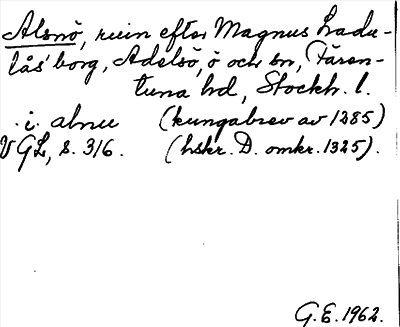 Alsnö, ruin efter Magnus Ladu-
lås' borg, Adelsö, ö och sn, Fären-
tuna hd, Stockh. l.
.i. alnu (kungabrev av 1285)
VGL, s. 316. (hskr. D. omkr. 1325).
G.E. 1962.